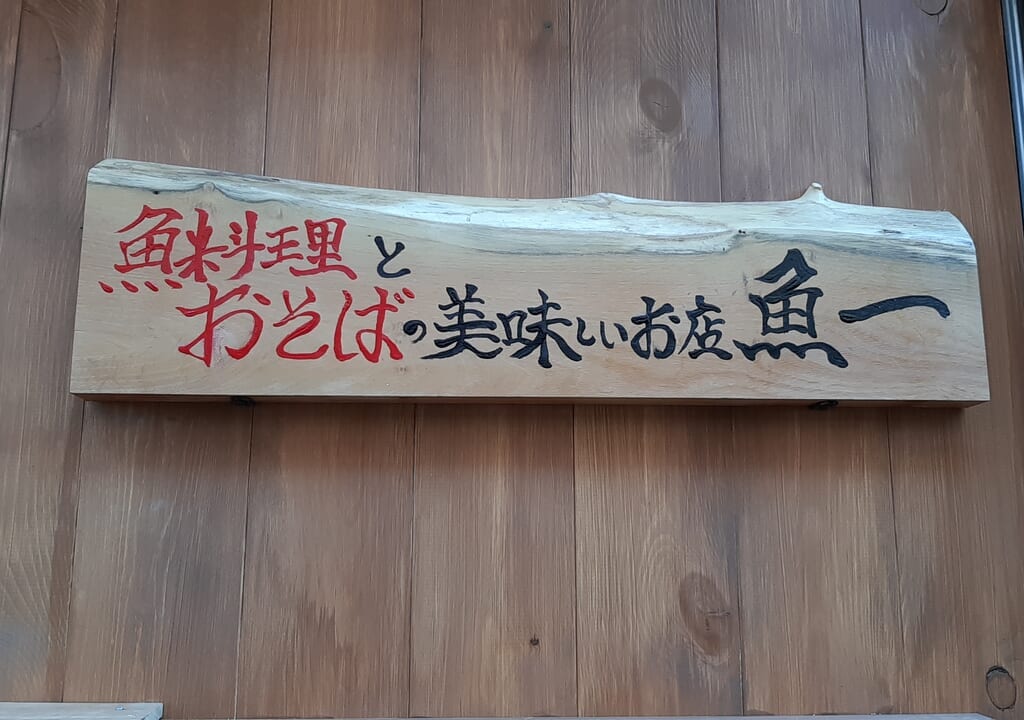 魚料理と
おそばの美味しいお店魚一